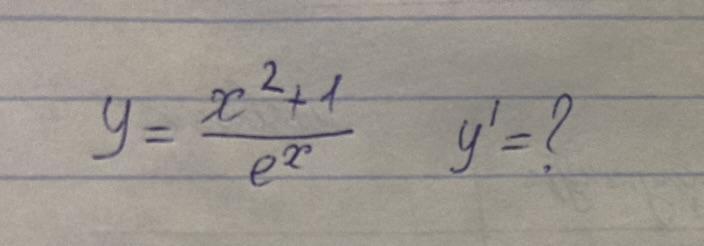 y = \frac{x^2+1}{e^x} y' = ?